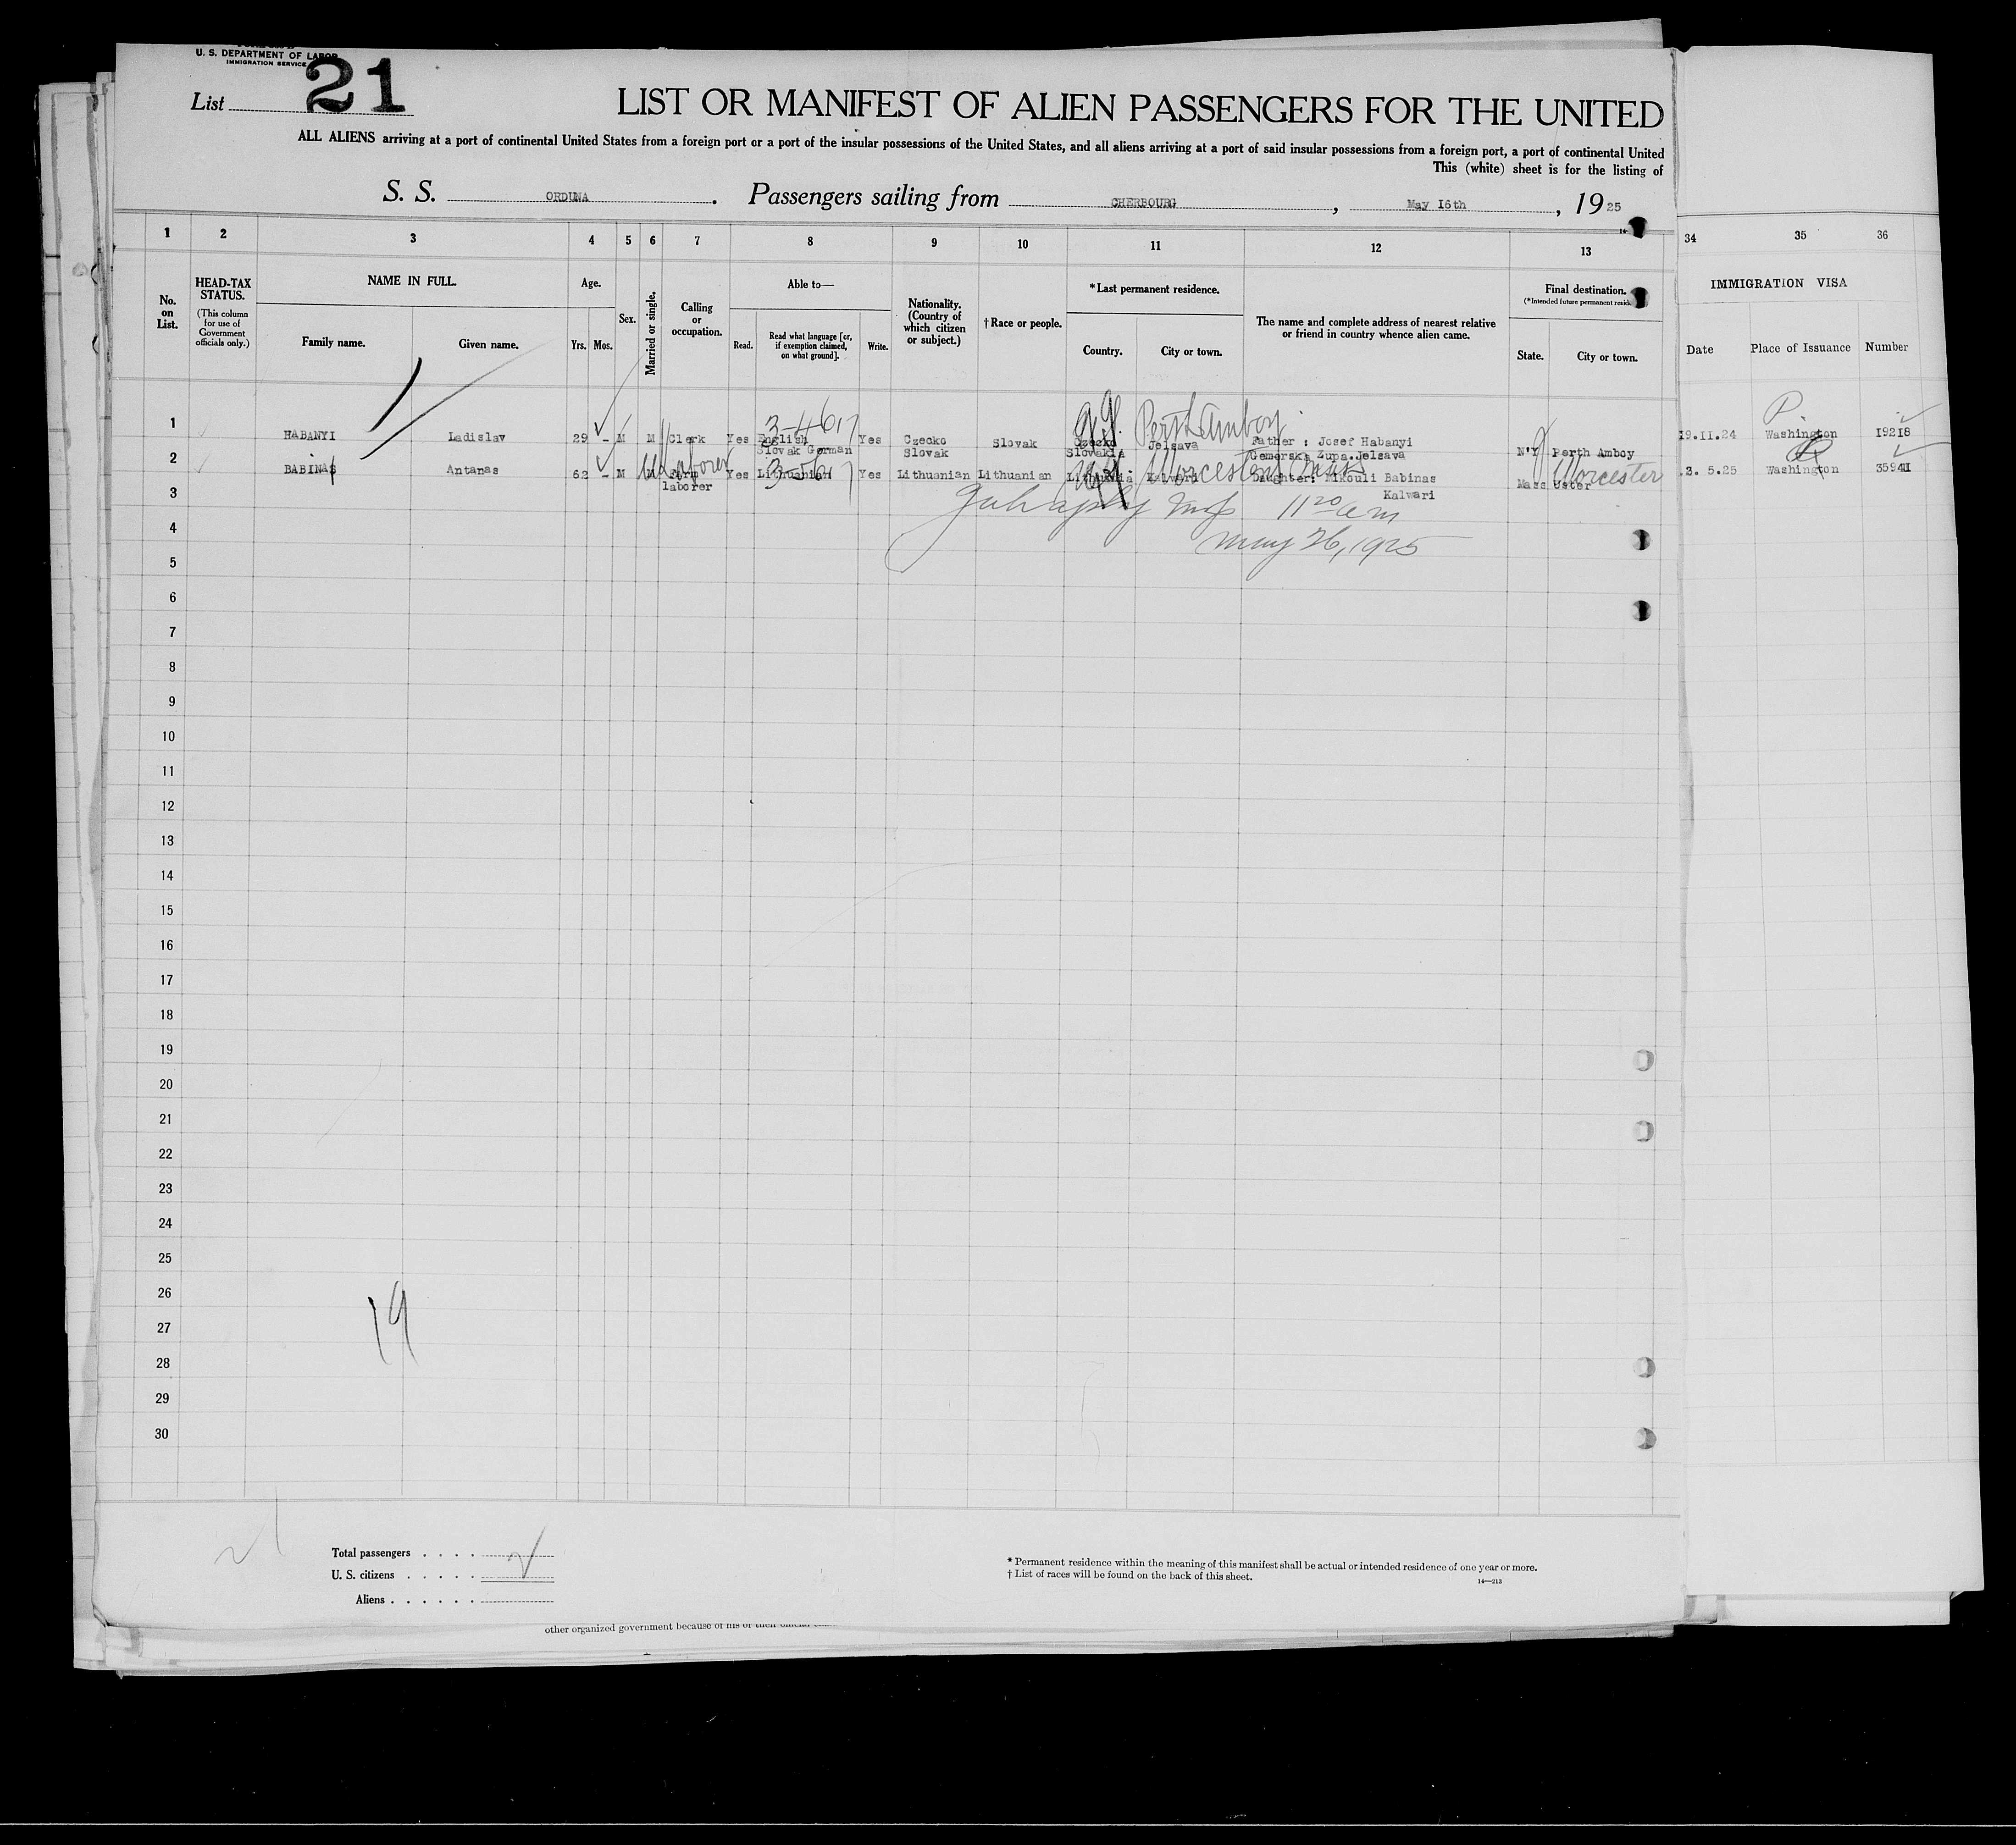 U. S. DEPARTMENT OF LABOR
IMMIGRATION SERVICE
List 21
LIST OR MANIFEST OF ALIEN PASSENGERS FOR THE UNITED
ALL ALIENS arriving at a port of continental United States from a foreign port or a port of the insular possessions of the United States, and all aliens arriving at a port of said insular possessions from a foreign port, a port of continental United
This (white) sheet is for the listing of
S. S. ORDUNA. Passengers sailing from CHERBOURG, May 16th, 1925
1 2 3 4 5 6 7 8 9 10 11 12 13 34 35 36
No. on List.
HEAD-TAX STATUS.
(This column for use of Government officials only.)
NAME IN FULL.
Family name.
Given name.
Age.
Yrs. Mos.
Sex.
Married or single.
Calling or occupation.
Able to—
Read.
Read what language [or, if exemption claimed, on what ground].
Write.
Nationality. (Country of which citizen or subject.)
†Race or people.
*Last permanent residence.
Country.
City or town.
The name and complete address of nearest relative or friend in country whence alien came.
Final destination.
(*Intended future permanent resid
State.
City or town.
IMMIGRATION VISA
Date
Place of Issuance
Number
3-4617
Perth Amboy
P.
1 HABANYI Ladislav 29 - M M Clerk Yes English Yes Czecko Slovak Czecko Jelsava Father : Josef Habanyi 19.11.24 Washington 19218
Slovak German Slovak Slovakia Gemerska Zupa.Jelsava N'Y Perth Amboy
Laborer 3-5 Worcester Mass Worcester
2 BABINAS Antanas 62 - M M Farm Yes Lithuanian Yes Lithuanian Lithuanian Lithuania Kalwari Daughter: Mikouli Babinas 3. 5.25 Washington 35941
laborer Kalwari Mass Uster
3
11 20 am
4
May 26, 1925
5
6
7
8
9
10
11
12
13
14
15
16
17
18
19
20
21
22
23
24
25
26
27
28
29
30
19
Total passengers . . . . 2
U. S. citizens . . . . .
Aliens . . . . . .
21
* Permanent residence within the meaning of this manifest shall be actual or intended residence of one year or more.
† List of races will be found on the back of this sheet.
14—213
other organized government because of his or their official